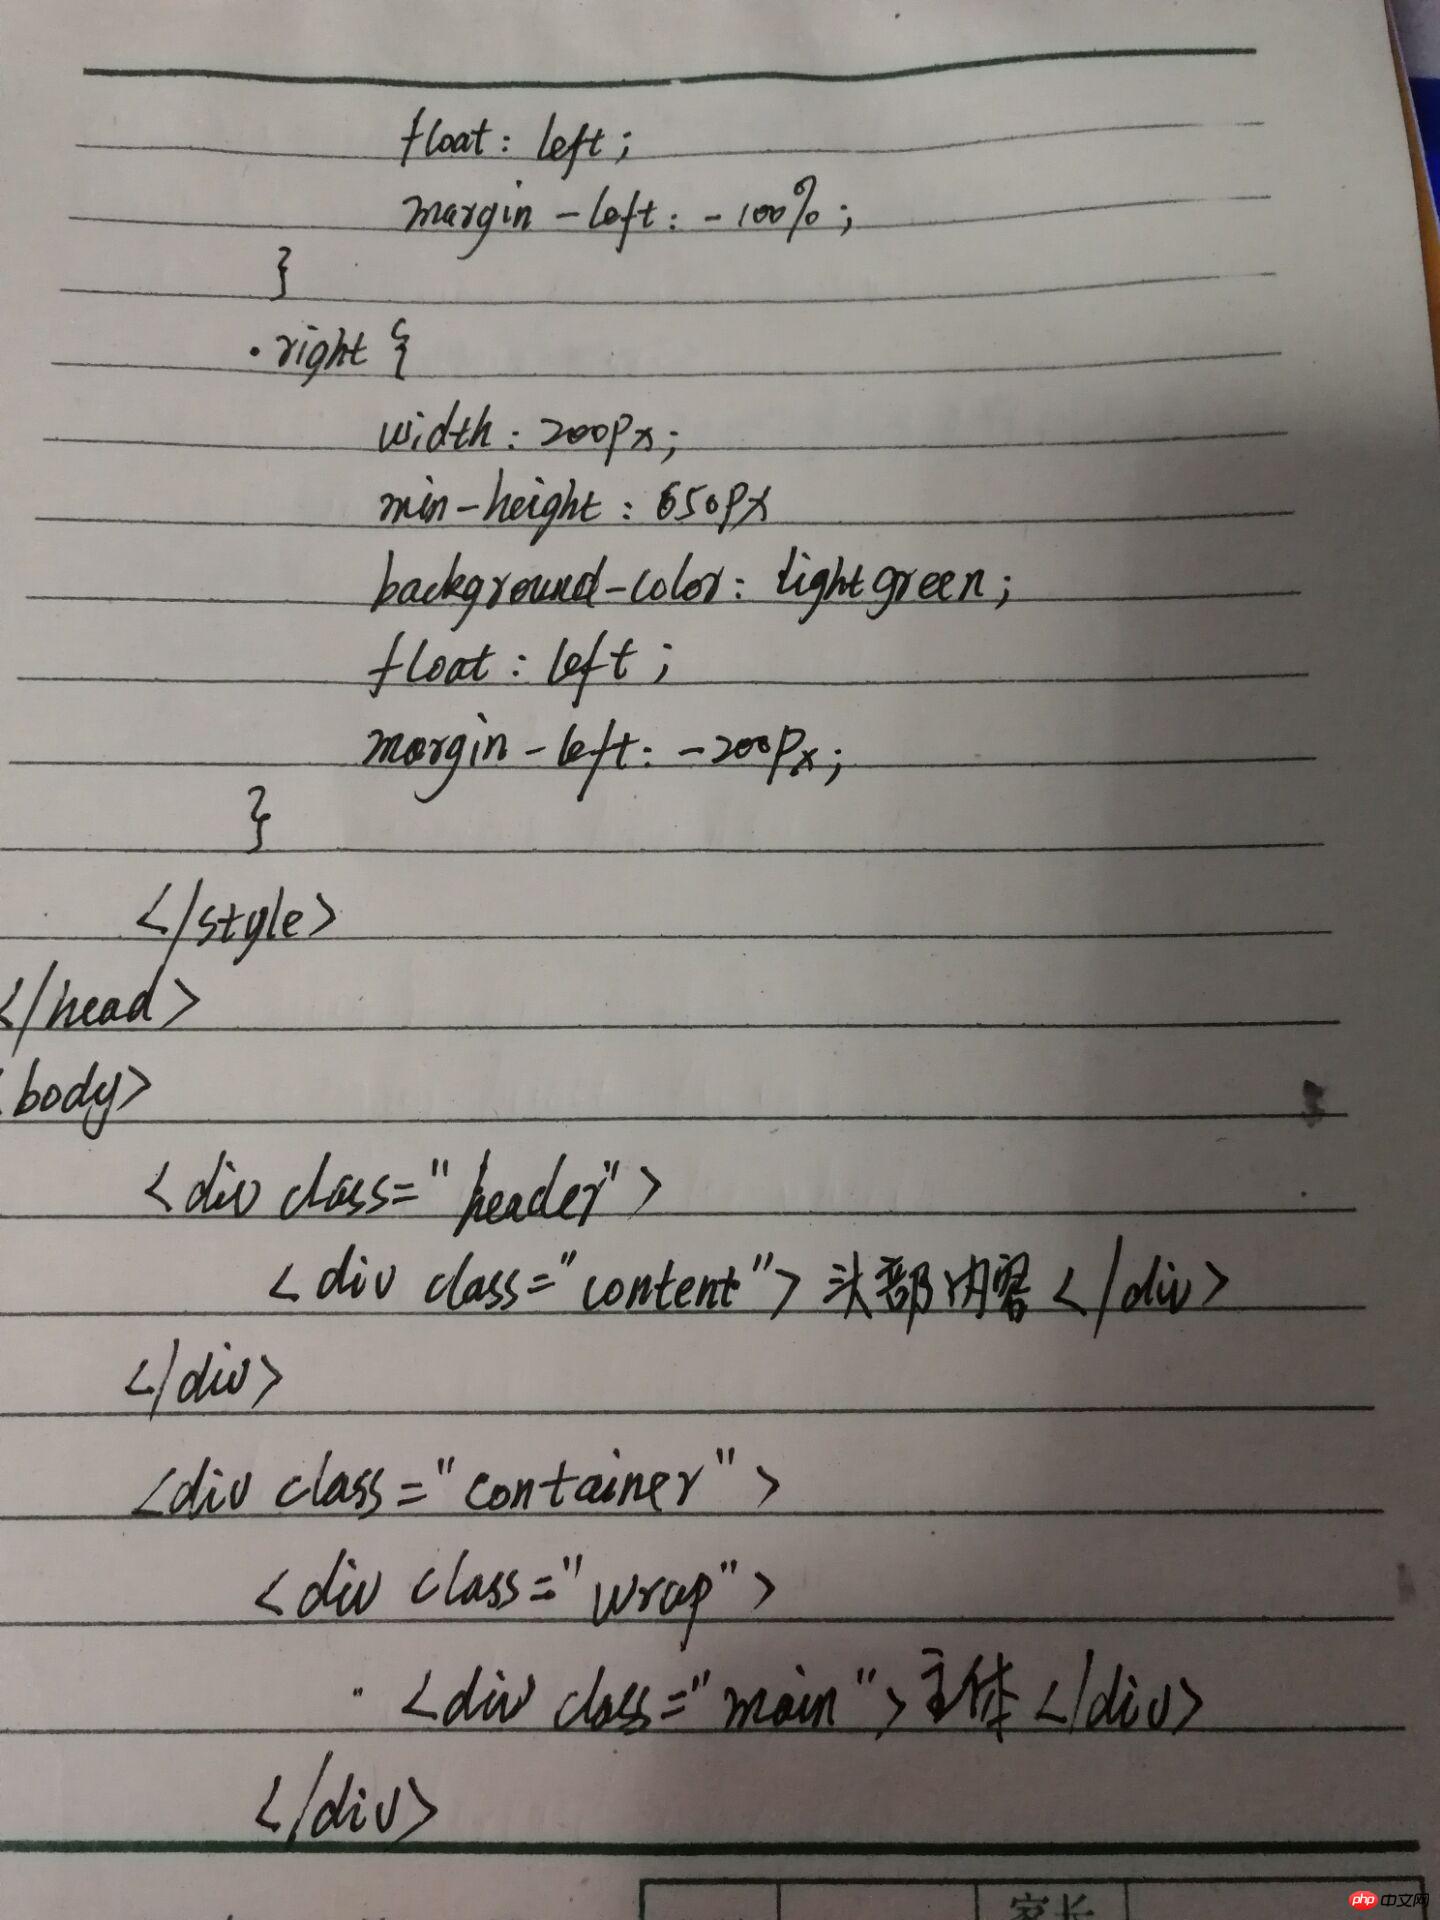 float: left;
margin-left: -100%;
}
.right {
width: 200px;
min-height: 650px
background-color: lightgreen;
float: left;
margin-left: -200px;
}
</style>
</head>
<body>
<div class="header">
<div class="content">头部内容</div>
</div>
<div class="container">
<div class="wrap">
<div class="main">主体</div>
</div>
家长
php 中文网